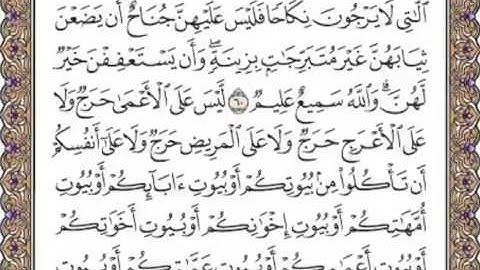 ٱلَّٰتِي لَا يَرْجُونَ نِكَاحًا فَلَيْسَ عَلَيْهِنَّ جُنَاحٌ أَن يَضَعْنَ
ثِيَابَهُنَّ غَيْرَ مُتَبَرِّجَٰتٍۭ بِزِينَةٍۖ وَأَن يَسْتَعْفِفْنَ خَيْرٌ
لَّهُنَّۗ وَٱللَّهُ سَمِيعٌ عَلِيمٌ ۝٦٠ لَّيْسَ عَلَى ٱلْأَعْمَىٰ حَرَجٌ وَلَا
عَلَى ٱلْأَعْرَجِ حَرَجٌ وَلَا عَلَى ٱلْمَرِيضِ حَرَجٌ وَلَا عَلَىٰٓ أَنفُسِكُمْ
أَن تَأْكُلُوا۟ مِنۢ بُيُوتِكُمْ أَوْ بُيُوتِ ءَابَآئِكُمْ أَوْ بُيُوتِ
أُمَّهَٰتِكُمْ أَوْ بُيُوتِ إِخْوَٰنِكُمْ أَوْ بُيُوتِ أَخَوَٰتِكُمْ
أَوْ بُيُوتِ أَعْمَٰمِكُمْ أَوْ بُيُوتِ عَمَّٰتِكُمْ أَوْ بُيُوتِ